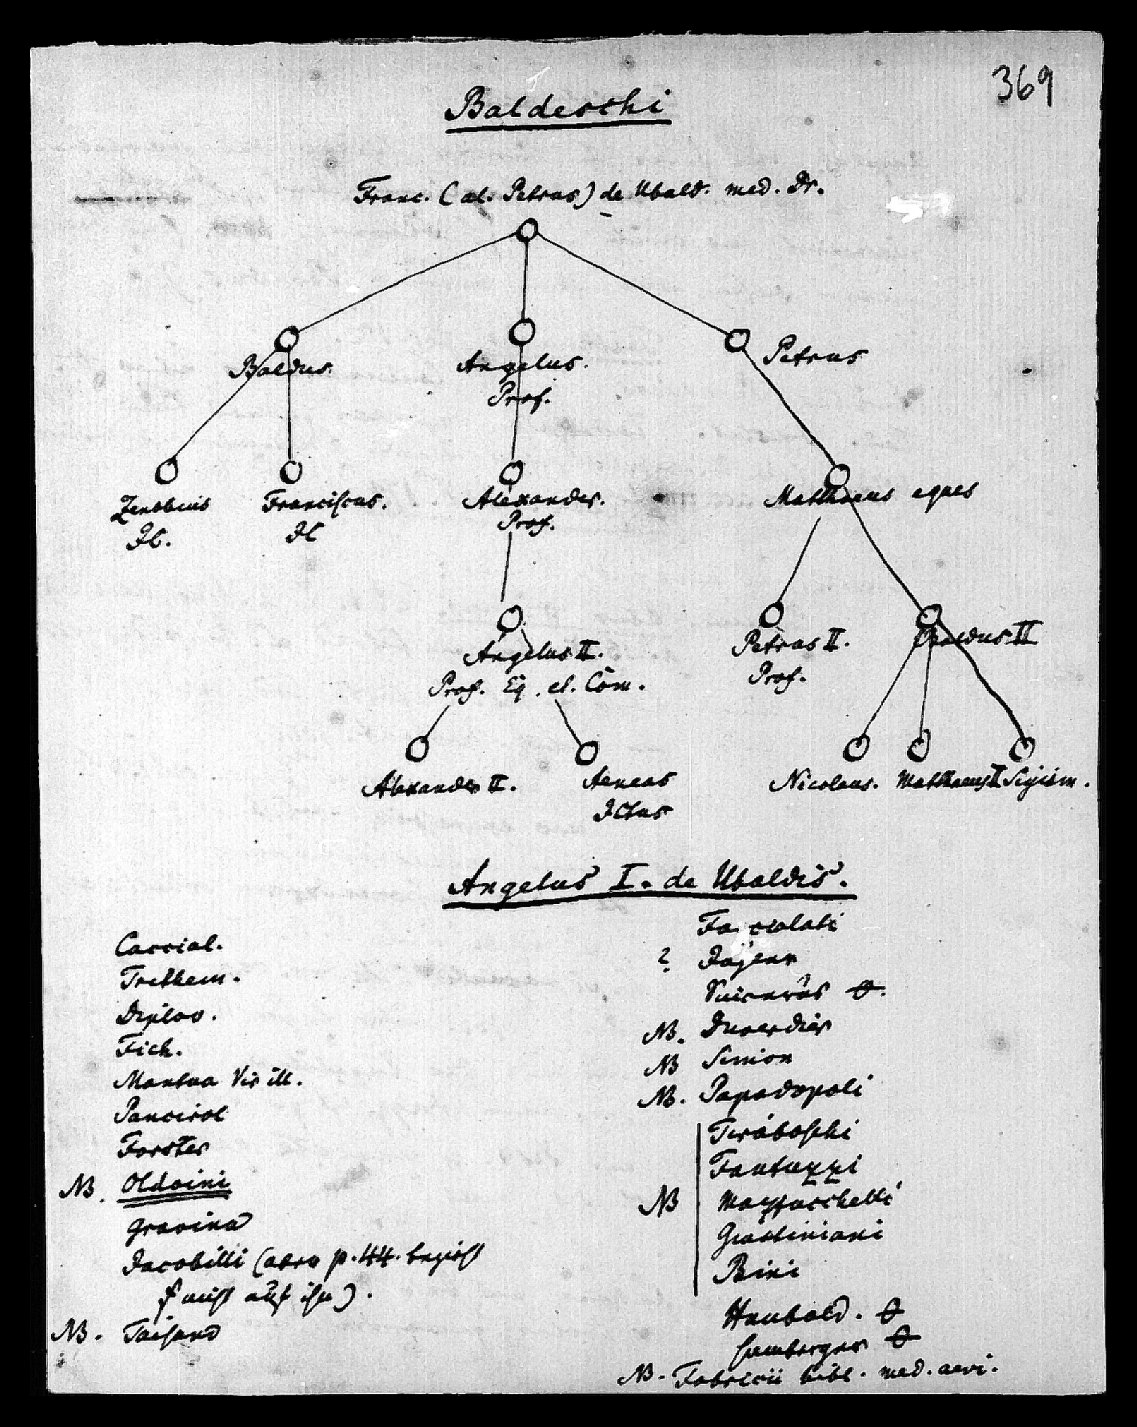 369
Baldeschi
Franc. (al. Petrus) de Ubald. med. Dr.
Baldus. Angelus. Petrus
Prof.
Zenobius Franciscus. Alexander. Matthaeus eques
JC. JC Prof.
Angelus II. Petrus II. Baldus II
Prof. Eq. et. Com. Prof.
Alexander II. Aeneas Nicolaus. Matthaeus II Sigism.
JCtus
Angelus I. de Ubaldis.
Caccial.
Trithem.
Diplov.
Fich.
Mantua Vir ill.
Pancirol
Forster
NB. Oldoini
Gravina
Jacobilli (aber p. 44. bezieht
s nicht auf ihn).
NB. Taisand
Facciolati
?
NB. Duverdier
NB Simon
NB. Papadopoli
Tiraboschi
Fantuzzi
NB Mazzucchelli
Giustiniani
Bini
Haubold. O
Hamberger O
NB. Fabricii bibl. med. aevi.